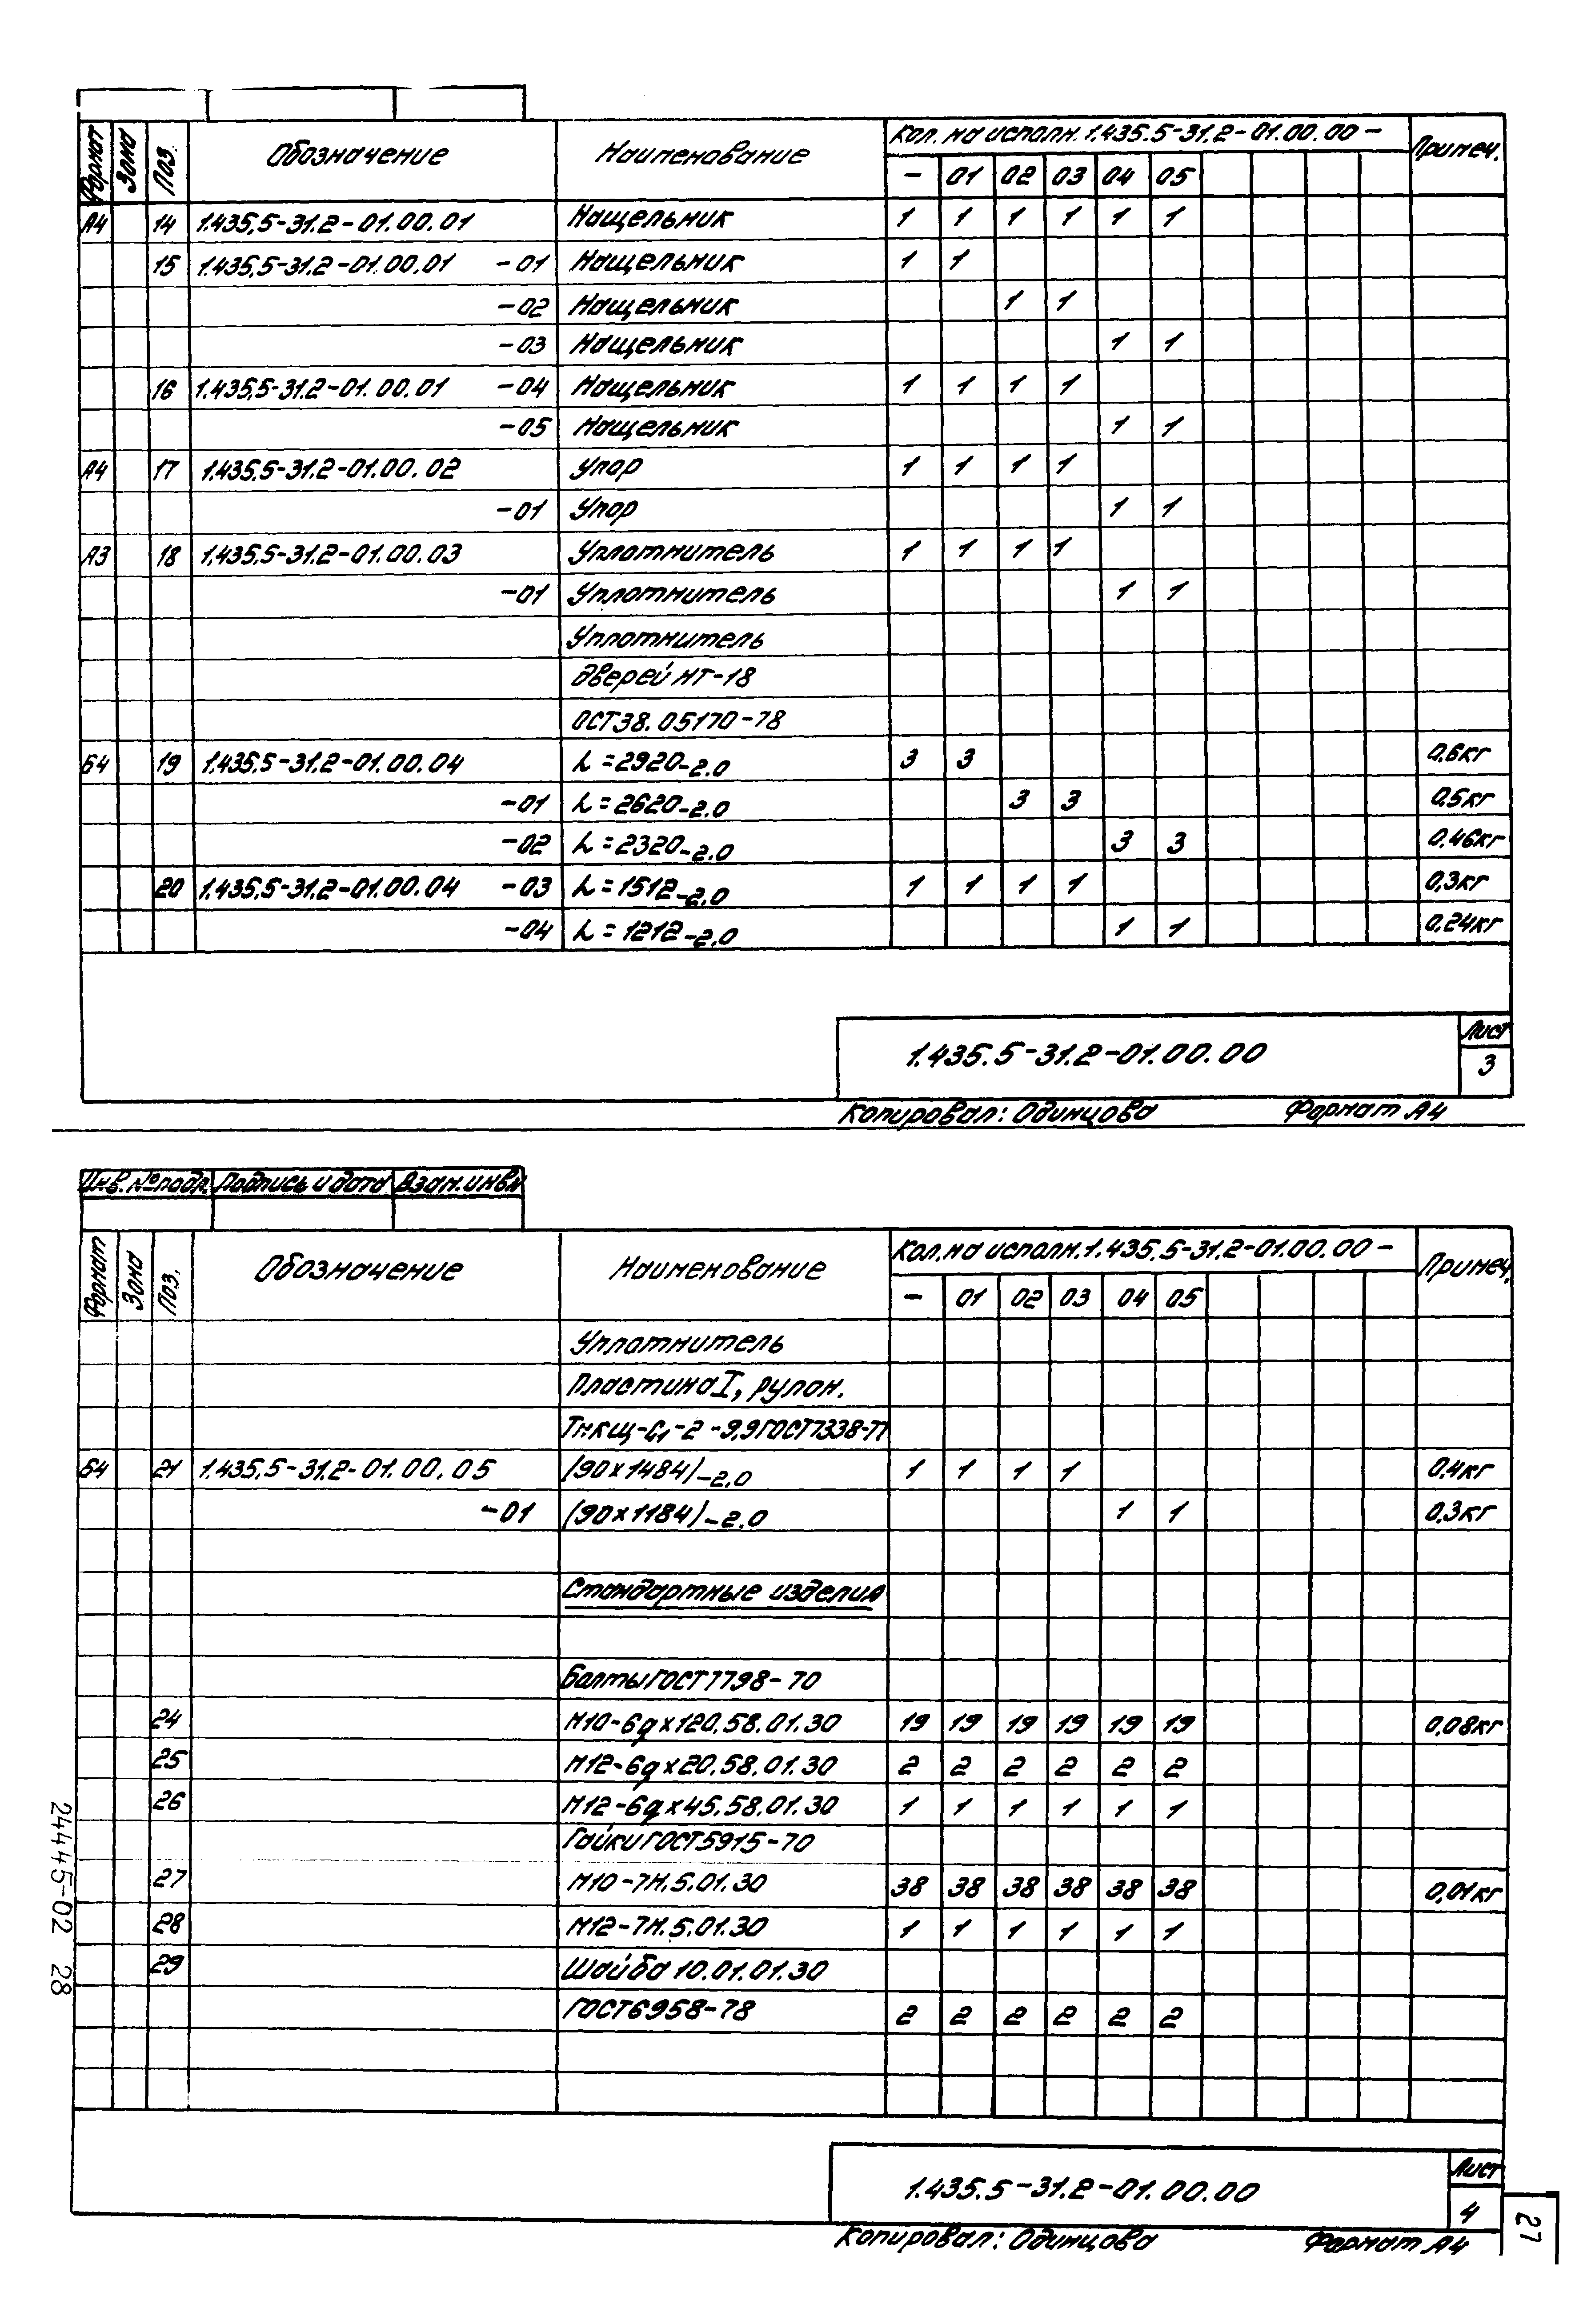 Формат Зона Поз. Обозначение Наименование Кол. на исполн. 1.435.5-31.2-01.00.00- Примеч.
- 01 02 03 04 05
А4 14 1.435.5-31.2-01.00.01 Нащельник 1 1 1 1 1 1
15 1.435.5-31.2-01.00.01 -01 Нащельник 1 1
-02 Нащельник 1 1
-03 Нащельник 1 1
16 1.435.5-31.2-01.00.01 -04 Нащельник 1 1 1 1
-05 Нащельник 1 1
А4 17 1.435.5-31.2-01.00.02 Упор 1 1 1 1
-01 Упор 1 1
А3 18 1.435.5-31.2-01.00.03 Уплотнитель 1 1 1 1
-01 Уплотнитель 1 1
Уплотнитель
дверей НТ-18
ОСТ38.05170-78
Б4 19 1.435.5-31.2-01.00.04 L=2920-2.0 3 3 0,6кг
-01 L=2620-2.0 3 3 0,5кг
-02 L=2320-2.0 3 3 0,46кг
20 1.435.5-31.2-01.00.04 -03 L=1512-2.0 1 1 1 1 0,3кг
-04 L=1212-2.0 1 1 0,24кг
1.435.5-31.2-01.00.00
Лист
3
Копировал: Одинцова Формат А4
Инв. № подл. Подпись и дата Взам. инв. №
Формат Зона Поз. Обозначение Наименование Кол. на исполн. 1.435.5-31.2-01.00.00- Примеч.
- 01 02 03 04 05
Уплотнитель
Пластина I, рулон.
ТМКЩ-С1-2-9,9 ГОСТ7338-77
Б4 21 1.435.5-31.2-01.00.05 (90х1484)-2.0 1 1 1 1 0,4кг
-01 (90х1184)-2.0 1 1 0,3кг
Стандартные изделия
Болты ГОСТ7798-70
24 М10-6gх120.58.01.30 19 19 19 19 19 19 0,08кг
25 М12-6gх20.58.01.30 2 2 2 2 2 2
26 М12-6gх45.58.01.30 1 1 1 1 1 1
Гайки ГОСТ5915-70
27 М10-7Н.5.01.30 38 38 38 38 38 38 0,01кг
28 М12-7Н.5.01.30 1 1 1 1 1 1
29 Шайба 10.01.01.30
ГОСТ6958-78 2 2 2 2 2 2
1.435.5-31.2-01.00.00
Лист
4
Копировал: Одинцова Формат А4
24445-02 28
27